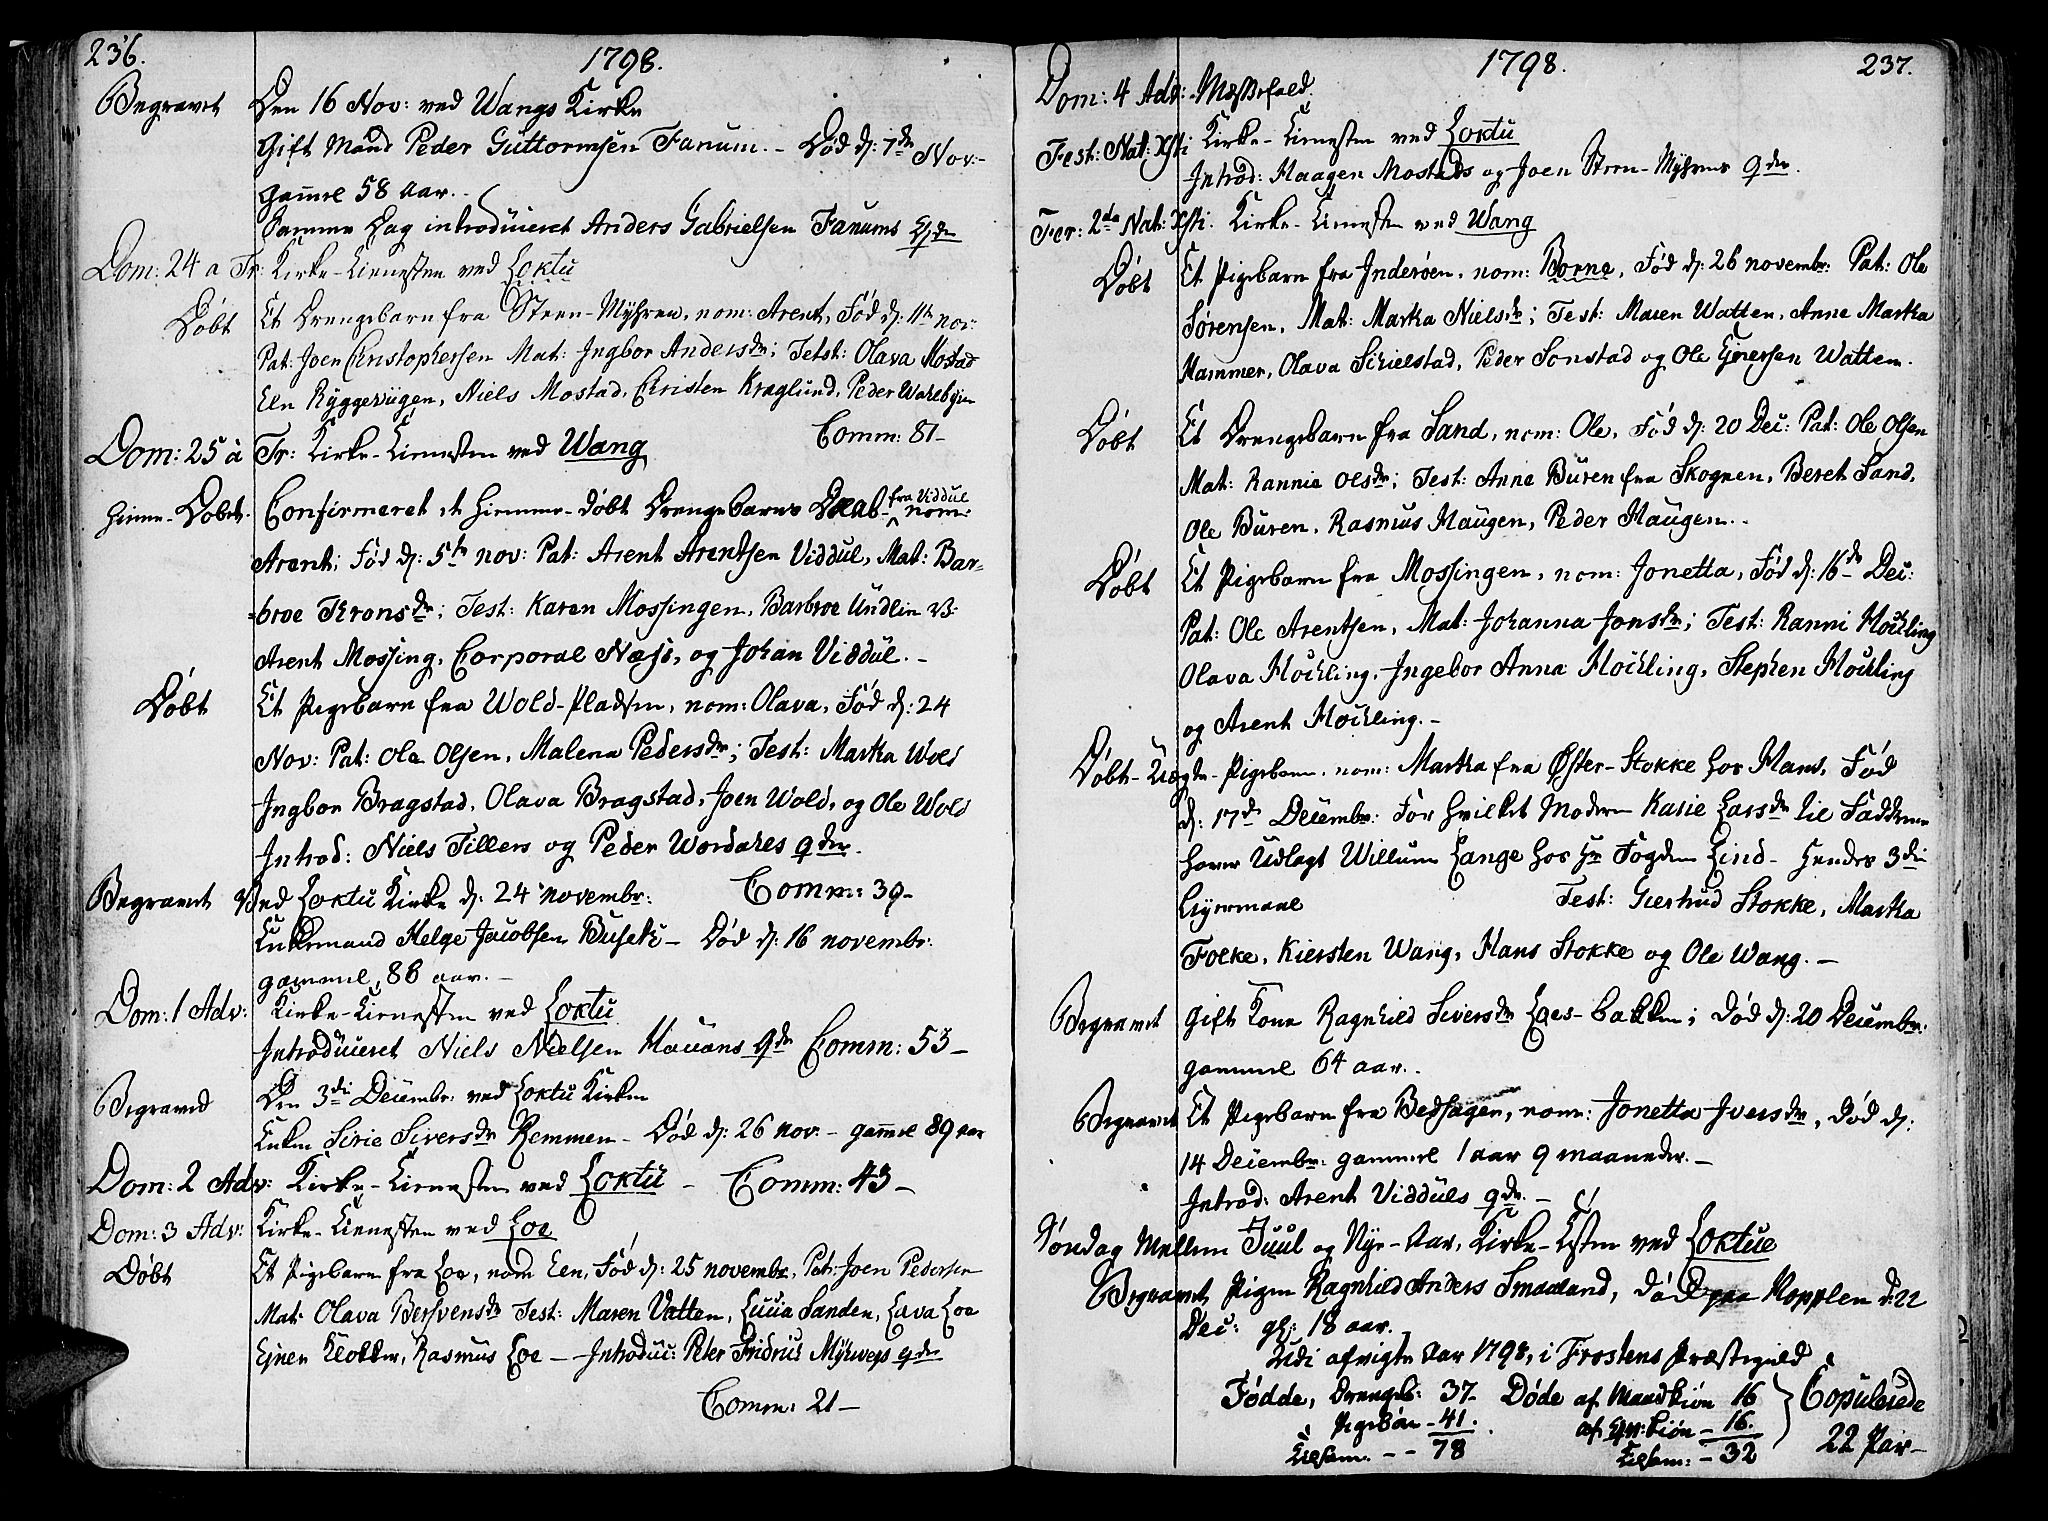 236. 1798.
Begravet Den 16 Nov: ved Wangs Kirke
Gift Mand Peder Guttormsen Fanum. – Død d: 7de Nov:–
gamel 58 aar. –
Samme Dag introduceret Anders Gabrielsen Fanums Qde
Dom: 24 a Tr: Kirke-Tienesten ved Loktu
Døbt Et Drengebarn fra Steen-Myhren, nom: Arent, Fød d: 11te nov:
Pat: Joen Christophersen Mat: Ingbor Andersdr; Test: Olava Mostad
Eln Ryggevügen, Niels Mostad, Christen Kraglund, Peder
Comm: 81–
Dom: 25 à Tr: Kirke-Tienesten ved Wang
Hieme-Døbt. Confirmeret et hiemme-døbt Drengebarns Daab fra Viddul nom:
Arent; Fød d: 5te nov: Pat: Arent Arentsen Viddul, Mat: Bar-
-broe Thronsdr; Test: Karen Mossingen, Barbroe Undlin
Arent Mossing, Corporal Næss, og Johan Viddul. –
Døbt Et Pigebarn fra Wold-Pladsen, nom: Olava, Fød d: 24
Nov: Pat: Ole Olsen, Malena Pedersdr; Test: Martha Wold
Ingbor Bragstad, Olava Bragstad, Joen Wold, og Ole Wold
Introd: Niels Tillers og Peder Wordahls qder.
Begravet Ved Loktu Kirke d: 24 novembr: Comm: 39–
Enkemand Helge Jacobsen – Død d: 16 novembr:
gammel, 88 aar. –
Dom: 1 Adv: Kirke-Tienesten ved Loktu
Introduceret Niels Nielsen Hauans qde Comm: 53–
Begraved Den 3die Decembr: ved Loktu Kirke
Enken Sirie Siversdr Remmen – Død d: 26 nov: – gamel 89 aar
Dom: 2 Adv: Kirke-Tienesten ved Loktu – Comm: 43–
Dom: 3 Adv: Kirke-Tienesten ved Loe
Døbt Et Pigebarn fra Loe, nom Een, Fød d: 25 novembr, Pat: Joen Pedersen
Mat: Olava Bersvensdr Test: Maren Vatten, Lucia Sanden, Lava Loe
Ejner Klokker, Rasmus Loe – Introduc: Peter Fridric qde
Comm: 21–
1798. 237.
Dom: 4 Adv: Messefald.
Fest: Nat: Xsti Kirke-Tienesten ved Loktu
Introd: Haagen Mostads og Joen Steen-Myhrens qder.
Fer: 2da Nat: Xsti: Kirke-Tienesten ved Wang
Døbt Et Pigebarn fra Inderøen, nom: Borne, Fød d: 26 novembr: Pat: Ole
Sørensen, Mat: Martha Nielsdr; Test: Maren Watten, Anne Martha
Hammer, Olava Schielstad, Peder Sonstad og Ole Ejnersen Watten.
Døbt Et Drengebarn fra Sand, nom: Ole, Fød d: 20 Dec: Pat: Ole Olsen
Mat: Rannie Olsdr; Test: Anne Buren fra Skognen, Beret Sand,
Ole Buren, Rasmus Haugen, Peder Haugen. –
Døbt Et Pigebarn fra Mossingen, nom: Jonetta, Fød d: 16de Dec:
Pat: Ole Arentsen, Mat: Johanna Jonsdr; Test: Ranni Hockling
Olava Hockling, Ingebor Anna Hockling, Stephen Hockling
og Arent Hockling. –
Døbt – Uægte-Pigebarn, nom: Martha fra Øster-Stokke hos Hans, Fød
d: 17de Decembr: For hvilket Moderen Karie Larsdr til Fadder
haver Udlagt Willum Lange hos Hr Fogden Lind – hendes 3die
Leyermaal Test: Giertrud Stokke, Martha
Folke, Kiersten Wang, Hans Stokke og Ole Wang. –
Begravet gift Kone Ragnhild Siversdr Loes-bakken; Død d: 20 Decembr:
gammel 64 aar. –
Begravet Et Pigebarn fra Bedhagen, nom: Jonetta Iversdr, Død d:
14 Decembr: gammel 1 aar 9 maaneder. –
Introd: Arent Vidduls qde. –
Søndag Mellem Juul og Nye-Aar, Kirke-Tienesten ved Loktue
Begravet Pigen Ragnhild Anders Smaaland, død paa Hopplen d: 22
Dec: gl: 18 aar.
Udi afvigte Aar 1798, i Frostens Præstegield
Fødde, Drengeb: 37 – Døde af Mandkiøn 16 } Copulerede
Pigebørn – 41. af Qvi: kiøn – 16. 22 Par –
Tilsam: – – 78 Tilsam: – 32